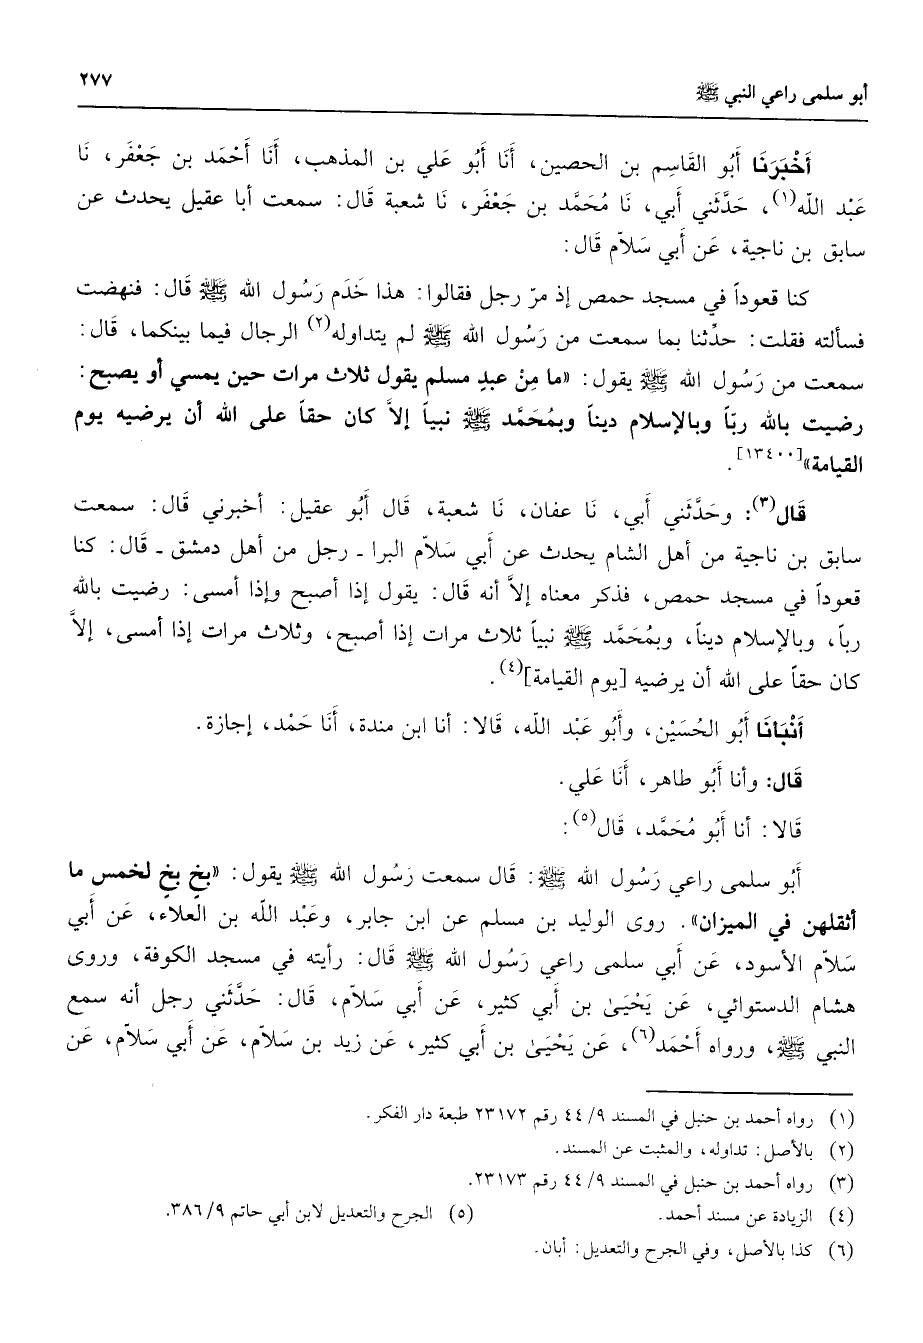 أبو سلمى راعي النبي ﷺ
٢٧٧
أَخْبَرَنَا أَبُو القَاسِم بن الحصين، أَنَا أَبُو علي بن المذهب، أَنَا أَحْمَد بن جَعْفَر، نَا
عَبْد الله(١)، حَدَّثَني أَبي، نَا مُحَمَّد بن جَعْفَر، نَا شعبة قَال: سمعت أبا عقيل يحدث عن
سابق بن ناجية، عَن أَبي سَلاّم قَال:
كنا قعوداً في مسجد حمص إذ مرّ رجل فقالوا: هذا خَدَم رَسُول الله ﷺ قَال: فنهضت
فسألته فقلت: حدِّثنا بما سمعت من رَسُول الله ﷺ لم يتداوله(٢) الرجال فيما بينكما، قَال:
سمعت من رَسُول الله ﷺ يقول: «ما مِنْ عبدٍ مسلم يقول ثلاث مرات حين يمسي أو يصبح:
رضيت بالله ربّاً وبالإسلام ديناً وبمُحَمَّد ﷺ نبياً إلاَّ كان حقاً على الله أن يرضيه يوم
القيامة»[١٣٤٠٠].
قَال(٣): وحَدَّثَني أَبي، نَا عفان، نَا شعبة، قَال أَبُو عقيل: أخبرني قَال: سمعت
سابق بن ناجية من أهل الشام يحدث عن أَبي سَلاّم البرا ـ رجل من أهل دمشق ـ قَال: كنا
قعوداً في مسجد حمص، فذكر معناه إلاَّ أنه قَال: يقول إذا أصبح وإذا أمسى: رضيت بالله
رباً، وبالإسلام ديناً، وبمُحَمَّد ﷺ نبياً ثلاث مرات إذا أصبح، وثلاث مرات إذا أمسى، إلاَّ
كان حقاً على الله أن يرضيه [يوم القيامة](٤).
أَنْبَانَا أَبُو الحُسَيْن، وأَبُو عَبْد الله، قَالا: أنا ابن مندة، أَنَا حَمْد، إجازة.
قَال: وأنا أَبُو طاهر، أَنَا عَلي.
قَالا: أنا أَبُو مُحَمَّد، قَال(٥):
أَبُو سلمى راعي رَسُول الله ﷺ: قَال سمعت رَسُول الله ﷺ يقول: «بخٍ بخٍ لخمس ما
أثقلهن في الميزان». روى الوليد بن مسلم عن ابن جابر، وعَبْد الله بن العلاء، عَن أَبي
سَلاّم الأسود، عَن أَبي سلمى راعي رَسُول الله ﷺ قَال: رأيته في مسجد الكوفة، وروى
هشام الدستوائي، عَن يَحْيَىٰ بن أَبي كثير، عَن أَبي سَلاّم، قَال: حَدَّثَني رجل أنه سمع
النبي ﷺ، ورواه أَحْمَد(٦)، عَن يَحْيَىٰ بن أَبي كثير، عَن زيد بن سَلاّم، عَن أَبي سَلاّم، عَن
(١) رواه أحمد بن حنبل في المسند ٩/ ٤٤ رقم ٢٣١٧٢ طبعة دار الفكر.
(٢) بالأصل: تداوله، والمثبت عن المسند.
(٣) رواه أحمد بن حنبل في المسند ٩/ ٤٤ رقم ٢٣١٧٣.
(٤) الزيادة عن مسند أحمد. (٥) الجرح والتعديل لابن أبي حاتم ٩/ ٣٨٦.
(٦) كذا بالأصل، وفي الجرح والتعديل: أبان.